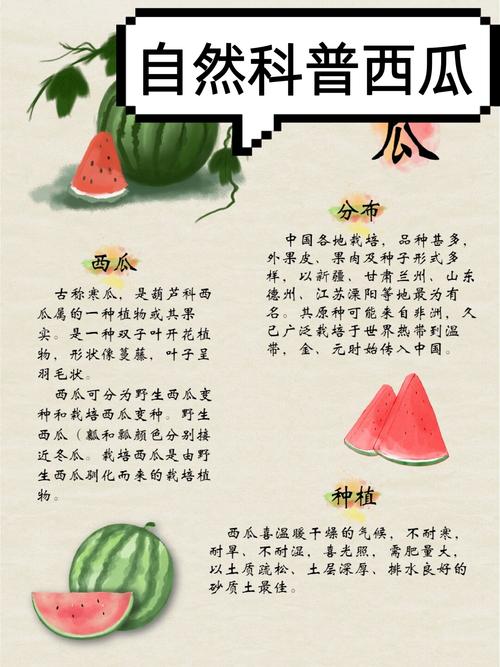 自然科普西瓜
瓜
西瓜
古称寒瓜，是葫芦科西
瓜属的一种植物或其果
实。是一种双子叶开花植
物，形状像蔓藤，叶子呈
羽毛状。
西瓜可分为野生西瓜变
种和栽培西瓜变种。野生
西瓜（瓤和瓢颜色分别接
近冬瓜。栽培西瓜是由野
生西瓜驯化而来的栽培植
物。
分布
中国各地栽培，品种甚多，
外果皮、果肉及种子形式多
样，以新疆、甘肃兰州、山东
德州、江苏溧阳等地最为有
名。其原种可能来自非洲，久
已广泛栽培于世界热带到温
带，金、元时始传入中国。
种植
西瓜喜温暖干燥的气候，不耐寒，
耐旱、不耐湿，喜光照，需肥量大，
以土质疏松、土层深厚、排水良好的
砂质土最佳。